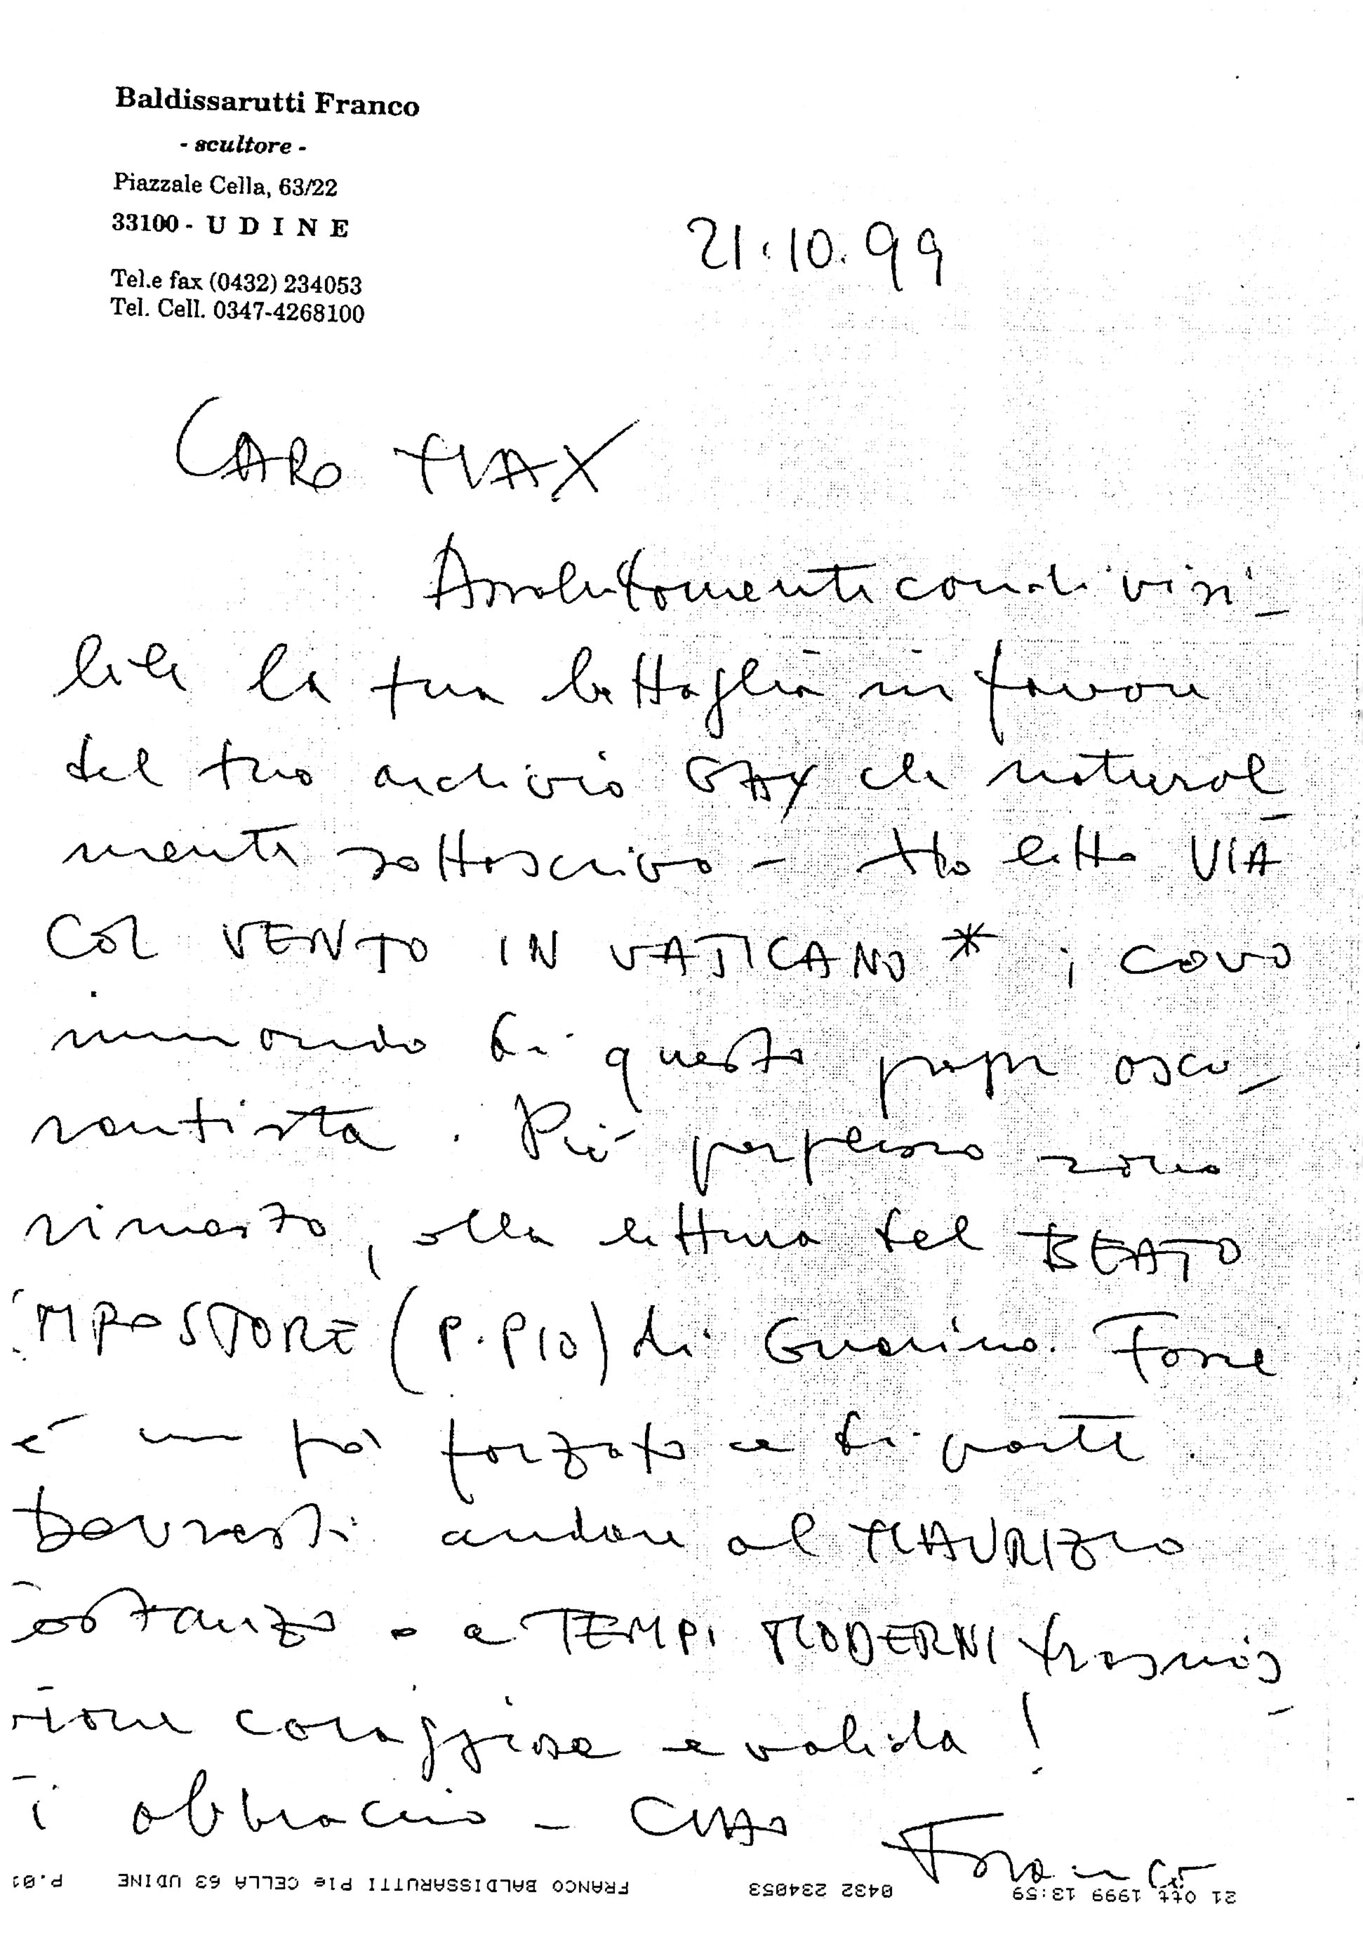 Baldissarutti Franco
- scultore -
Piazzale Cella, 63/22
33100 - U D I N E
Tel.e fax (0432) 234053
Tel. Cell. 0347-4268100
21.10.99
CARO MAX
Assolutamente condivisi-
bile la tua battaglia in favore
del tuo archivio GAY che natural-
mente sottoscrivo - Ho letto VIA
COL VENTO IN VATICANO * ; covo
immondo di questo papa oscu-
rantista. Più perplesso sono
rimasto, alla lettura del BEATO
IMPOSTORE (P. PIO) di Guarino. Forse
è un po' forzato e di parte.
Dovresti andare al MAURIZIO
Costanzo o a TEMPI MODERNI trasmis-
sione coraggiosa e valida!
Ti abbraccio - CIAO Franco
21 Ott 1999 13:59 0432 234053 FRANCO BALDISSARUTTI Ple CELLA 63 UDINE P.01